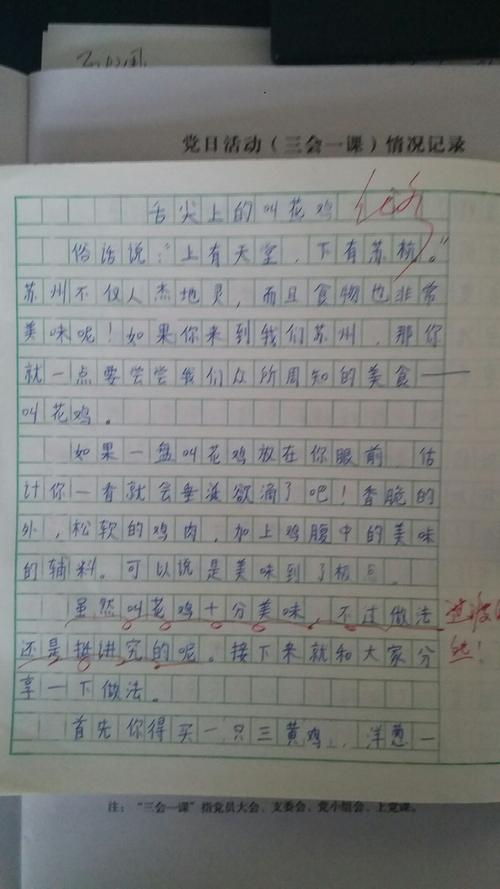 党日活动（三会一课）情况记录
舌尖上的叫花鸡
俗话说："上有天堂，下有苏杭。"
苏州不仅人杰地灵，而且食物也非常
美味呢！如果你来到我们苏州，那你
就一点要尝尝我们众所周知的美食——
叫花鸡。
如果一盘叫花鸡放在你眼前，估
计你一看就会垂涎欲滴了吧！香脆的
外，松软的鸡肉，加上鸡腹中的美味
的辅料。可以说是美味到了极
虽然叫花鸡十分美味，不过做法
过渡自
还是挺讲究的呢。接下来就和大家分
然！
享一下做法。
首先你得买一只三黄鸡，洋葱一
注："三会一课"指党员大会、支委会、党小组会、上党课。